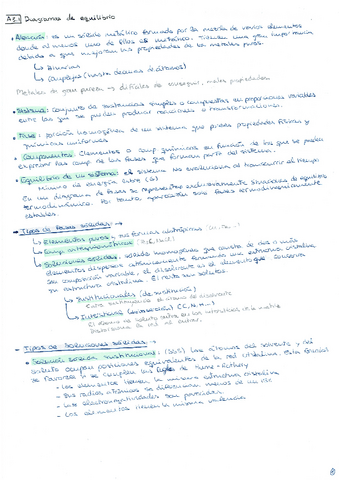 Diagramas de equilibrio
• Aleación: es un sólido metálico formado por la mezcla de varios elementos
donde al menos uno de ellos es metálico. Tienen una gran importancia
debido a que mejoran las propiedades de los metales puros.
↳ Binarias
↳ Complejas (hasta decenas de átomos)
Metales de gran pureza → difíciles de conseguir, malas propiedades.
• Sistema: Conjunto de sustancias simples o compuestas en proporciones variables
entre las que se pueden producir reacciones o transformaciones.
• Fase: porción homogénea de un sistema que posee propiedades físicas y
químicas uniformes.
• Componentes: Elementos o comp. químicos en función de los que se puede
expresar la comp. de las fases que forman parte del sistema.
• Equilibrio de un sistema: el sistema no evoluciona al transcurrir el tiempo
Mínimo de energía libre (G)
En un diagrama de fases se representan exclusivamente situaciones de equilibrio
termodinámico. Por tanto, aparecerán solo fases termodinámicamente
estables.
→ Tipos de fases sólidas:
↳ Elementos puros y sus formas alotrópicas
↳ Comp. estequiométricos
↳ Soluciones sólidas: sólido homogéneo que consta de dos o más
elementos dispersos atómicamente formando una estructura cristalina
de composición variable, el disolvente es el elemento que conserva
su estructura cristalina. El resto son solutos.
↳ Sustitucionales (de sustitución)
↳ Intersticial
El átomo de soluto entra en los intersticios de la matriz
→ Tipos de soluciones sólidas:
• Solución sólida sustitucional (SSS) los átomos del solvente y del
soluto ocupan posiciones equivalentes de la red cristalina. Esta
se favorece si se cumplen las reglas de Hume-Rothery
- Los elementos tienen la misma estructura cristalina
- Sus radios atómicos se diferencian menos de un 15%
- Las electronegatividades son parecidas.
- Los elementos tienen la misma valencia.